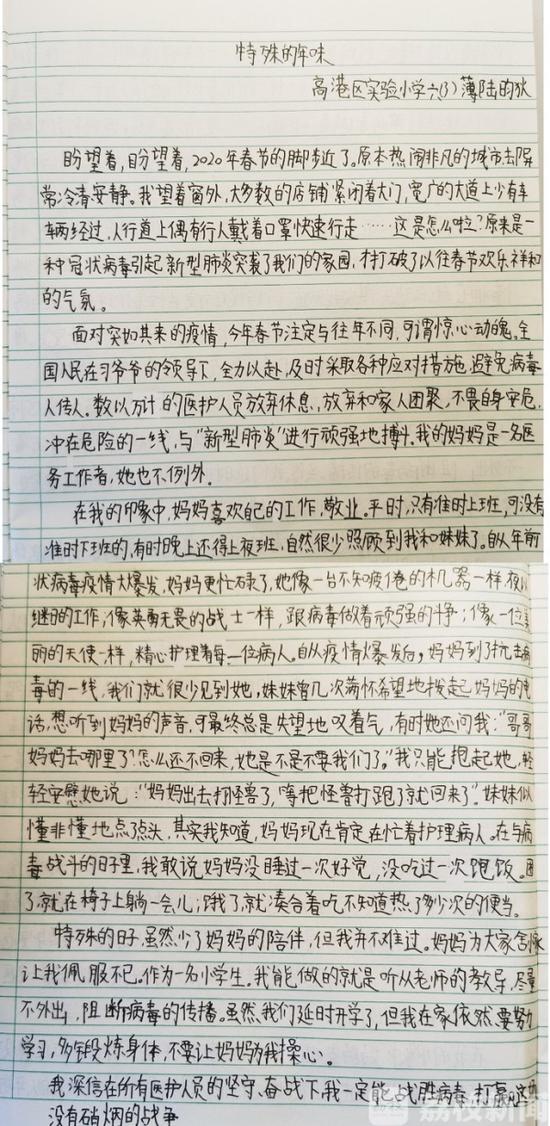 特殊的年味
高港区实验小学六(3) 薄陆昀狄
盼望着,盼望着,2020年春节的脚步近了。原本热闹非凡的城市却异
常冷清安静。我望着窗外,大多数的店铺紧闭着大门,宽广的大道上少有车
车辆经过,人行道上偶有行人戴着口罩快速行走……这是怎么啦?原来是一
种冠状病毒引起新型肺炎突袭了我们的家园,才打破了以往春节欢乐祥和
的气氛。
面对突如其来的疫情,今年春节注定与往年不同,可谓惊心动魄。全
国人民在习爷爷的领导下,全力以赴,及时采取各种应对措施,避免病毒
人传人。数以万计的医护人员放弃休息,放弃和家人团聚,不畏自身安危,
冲在危险的一线,与“新型肺炎”进行顽强地搏斗。我的妈妈是一名医
务工作者,她也不例外。
在我的印象中,妈妈喜欢自己的工作,敬业。平时,只有准时上班,可没有
准时下班的,有时晚上还得上夜班,自然很少照顾到我和妹妹了。自从年前
状病毒疫情大爆发,妈妈更忙碌了,她像一台不知疲倦的机器一样,夜以
继日的工作;像英勇无畏的战士一样,跟病毒做着顽强的斗争;像一位美
丽的天使一样,精心护理着每一位病人。自从疫情爆发后,妈妈到了抗击病
毒的一线,我们就很少见到她,妹妹曾几次满怀希望地拨起妈妈的电
话,想听到妈妈的声音,可最终总是失望地叹着气,有时她还问我:“哥哥
妈妈去哪里了?怎么还不回来,她是不是不要我们了。”我只能抱起她,轻
轻安慰她说:“妈妈出去打怪兽了,等把怪兽打跑了就回来了”。妹妹似
懂非懂地点了点头,其实我知道,妈妈现在肯定在忙着护理病人。在与病
毒战斗的日子里,我敢说妈妈没睡过一次好觉,没吃过一次饱饭。困
了,就在椅子上躺一会儿;饿了,就凑合着吃不知道热了多少次的便当。
特殊的日子,虽然少了妈妈的陪伴,但我并不难过。妈妈为大家舍小家
让我佩服不已。作为一名小学生。我能做的就是听从老师的教导,尽量
不外出,阻断病毒的传播。虽然,我们延时开学了,但我在家依然要努力
学习,多锻炼身体,不要让妈妈为我操心。
我深信在所有医护人员的坚守、奋战下,我一定能战胜病毒,打赢这场
没有硝烟的战争
荔枝新闻